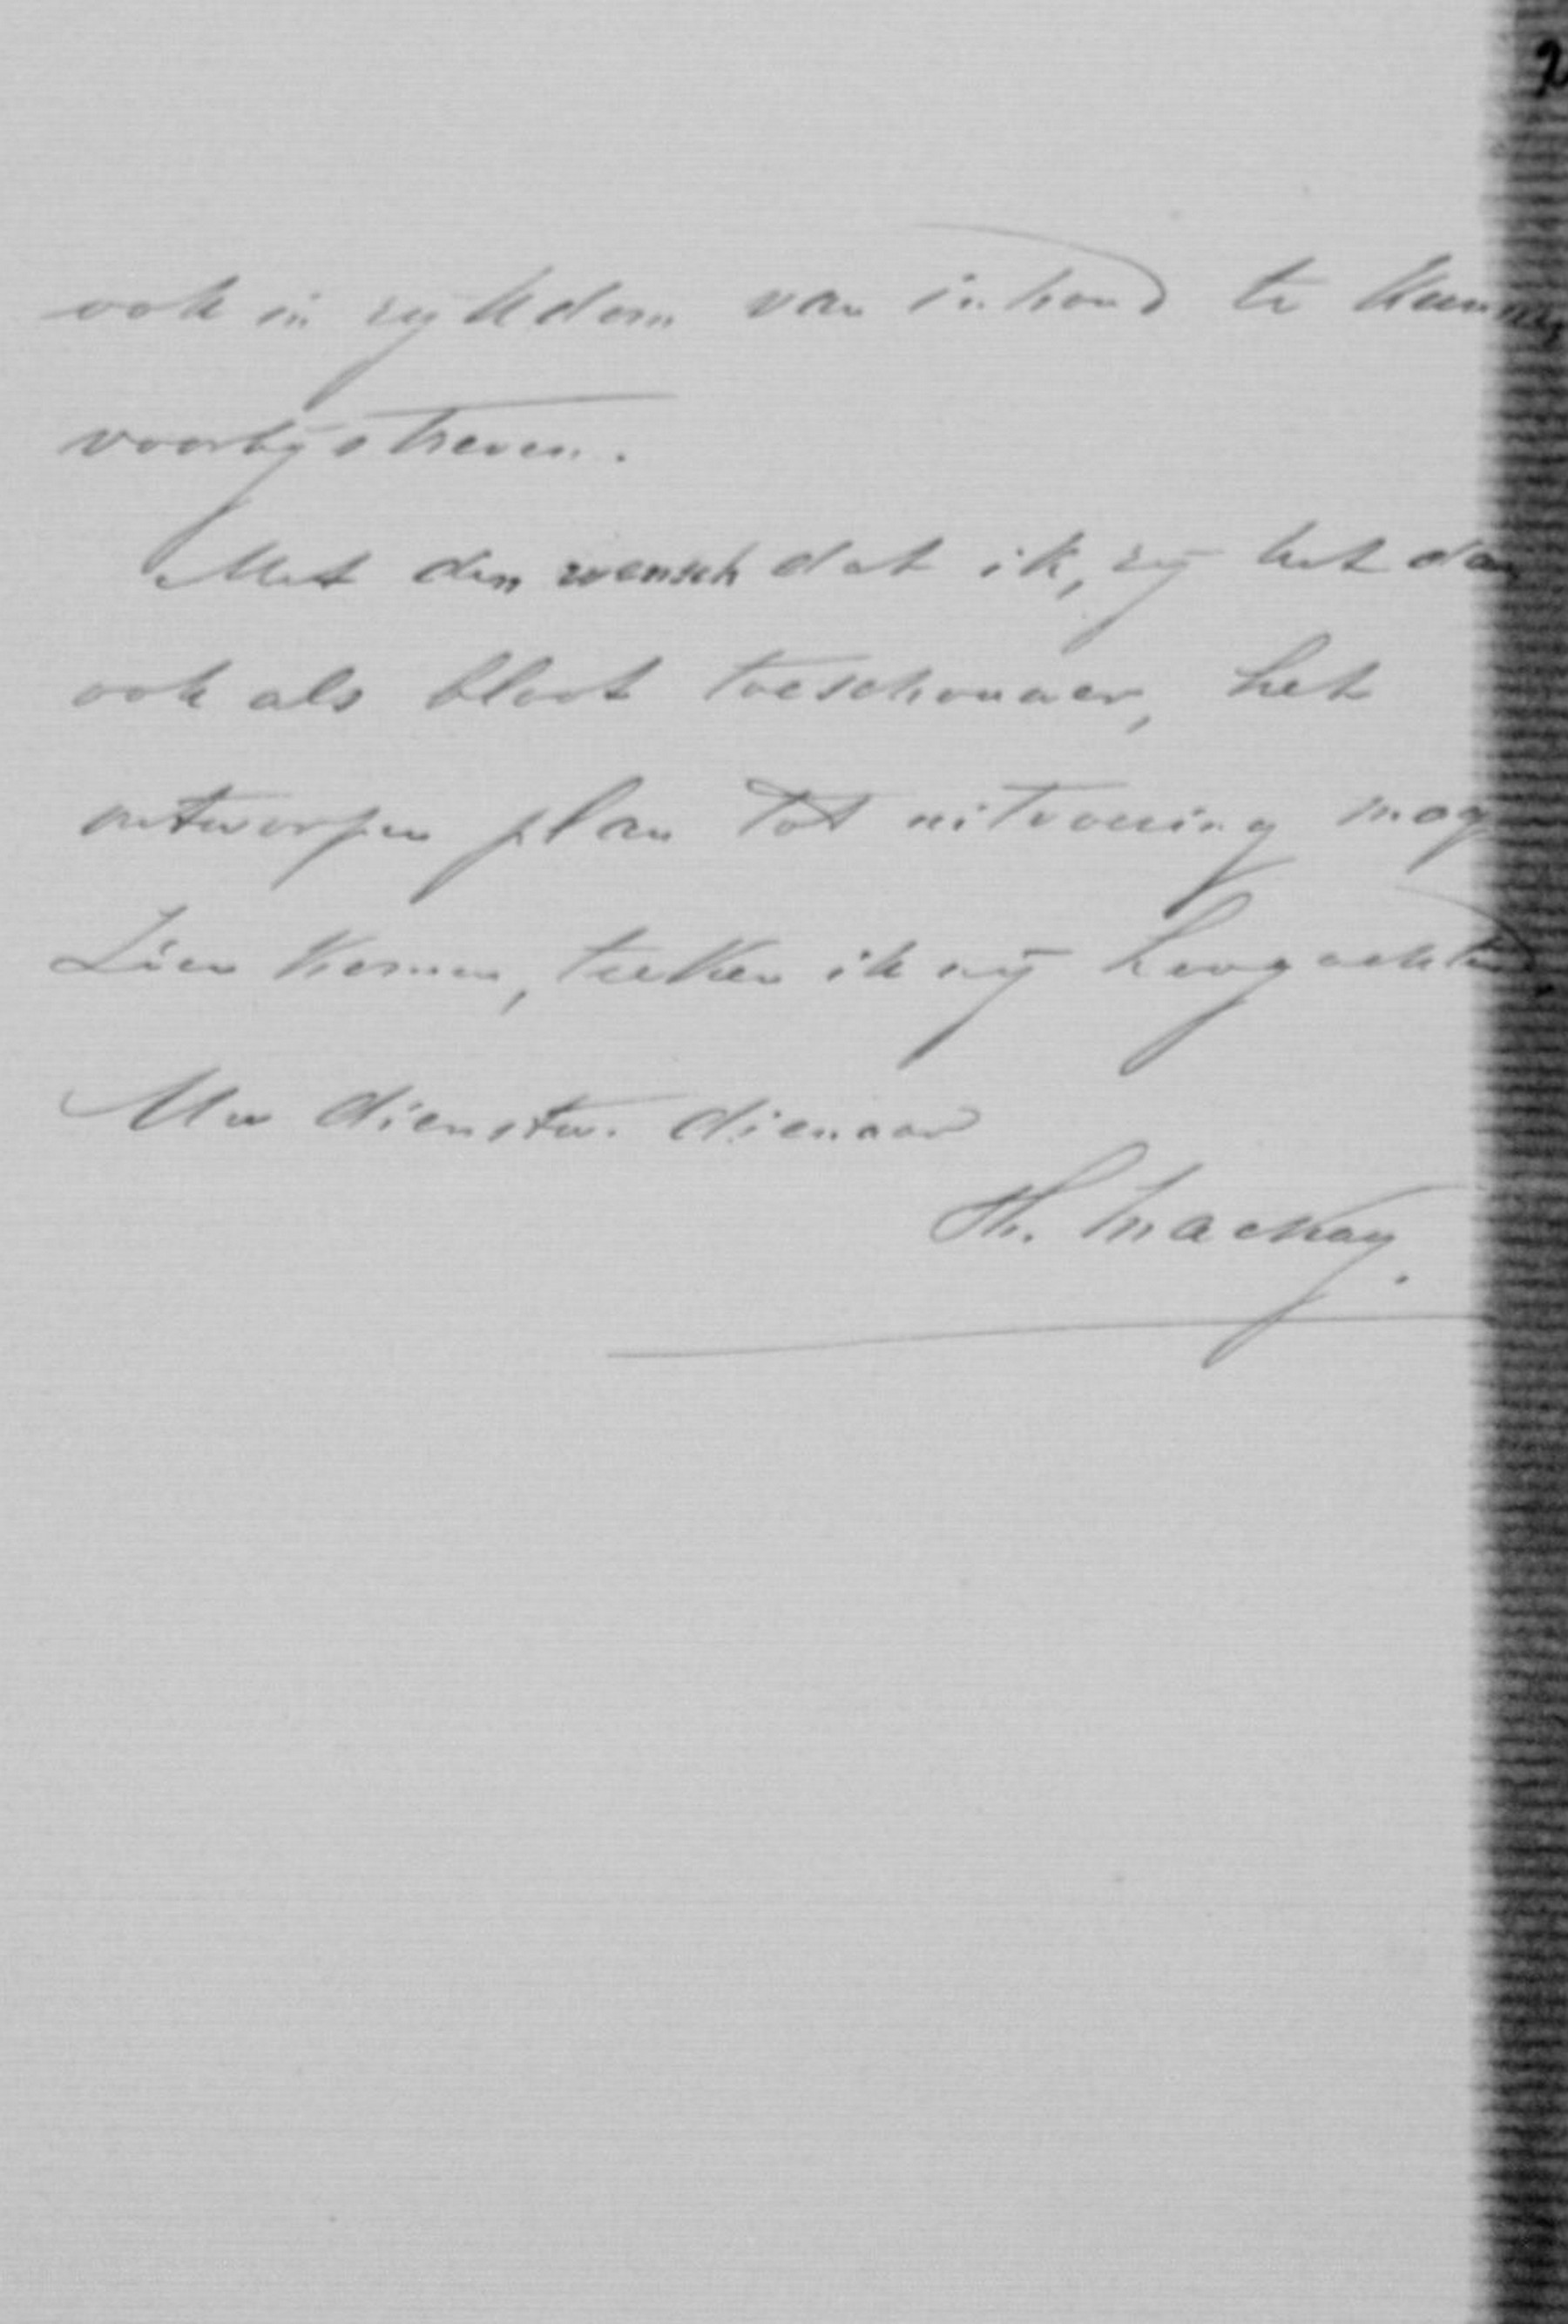 ook in rijkdom van inhoud te kunnen
voorbijstreven.
Met den wensch dat ik, zij het dan
ook als bloot toeschouwer, het
ontworpen plan tot uitvoering mag
zien komen, teeken ik mij hoogachtend
Uw dienstw. dienaar
Th. Mackay.